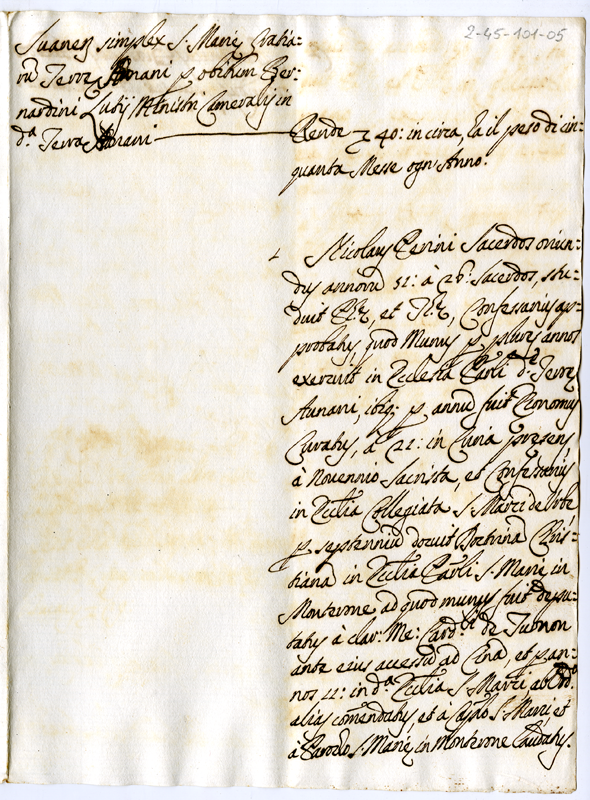 2-45-101-05
simplex S. Mariȩ Gratia-
rũ Terrȩ Annani p obitum Ber-
nardini Lutij Ministri Cameralis in
d.ª Terra Annani
Rende 40: in circa, hà il peso di cin-
quanta Messe ogn'Anno.
Nicolaus Perini Sacerdos oriun-
dus annorũ 51: à 26: Sacerdos, stu-
duit et Confessarius ap-
probatus, quod Munus p plures annos
exercuit in Ecclesia d.ȩ Terrȩ
p annũ fuit Economus
Curatus, à 22: in Curia presens,
à Novennio Sacrista, et Confessarius
in Ecclia Collegiata S. Marci de Urbe
p septenniũ docuit Doctrinã Chris-
tianã in Ecclia S. Mariȩ in
Monterone ad quod munus fuit depu-
tatus à clar: Me: Card. de
ante eius accessũ ad et p an-
nos 11: in d.ª Ecclia S. Marci ab
alias comẽndatus et à S. Marci et
à Parocho S. Mariȩ in Monterone laudatus.